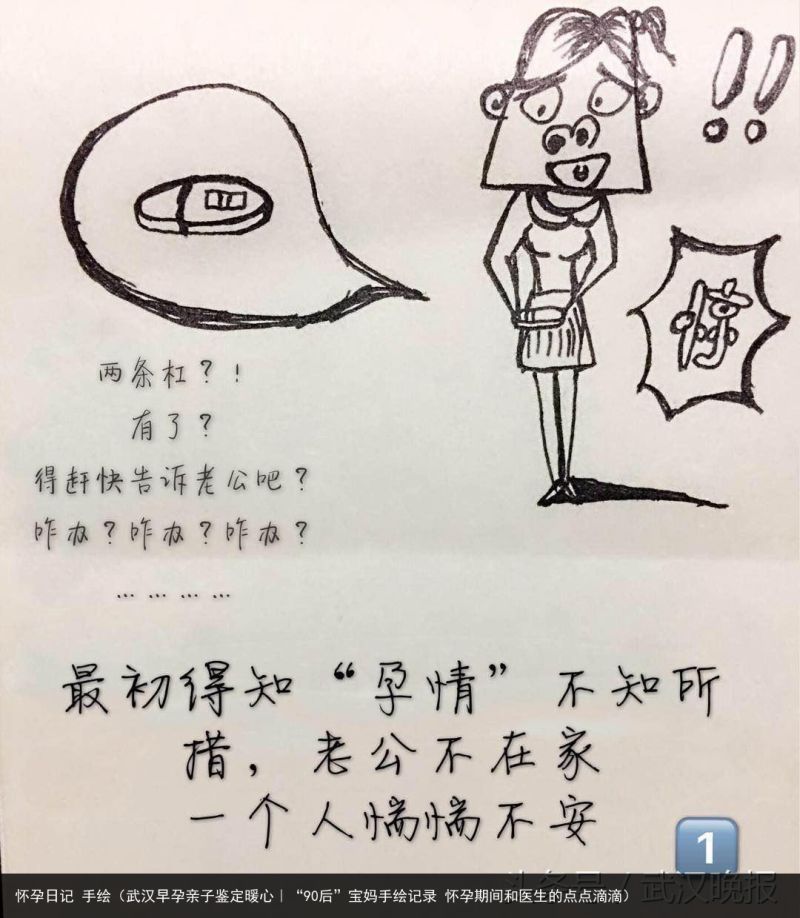 !!
两条杠？！
有了？
得赶快告诉老公吧？
咋办？咋办？咋办？
… … … …
最初得知“孕情”不知所
措，老公不在家
一个人惴惴不安
1
头条号 / 武汉晚报
怀孕日记 手绘（武汉早孕亲子鉴定暖心｜“90后”宝妈手绘记录 怀孕期间和医生的点点滴滴）